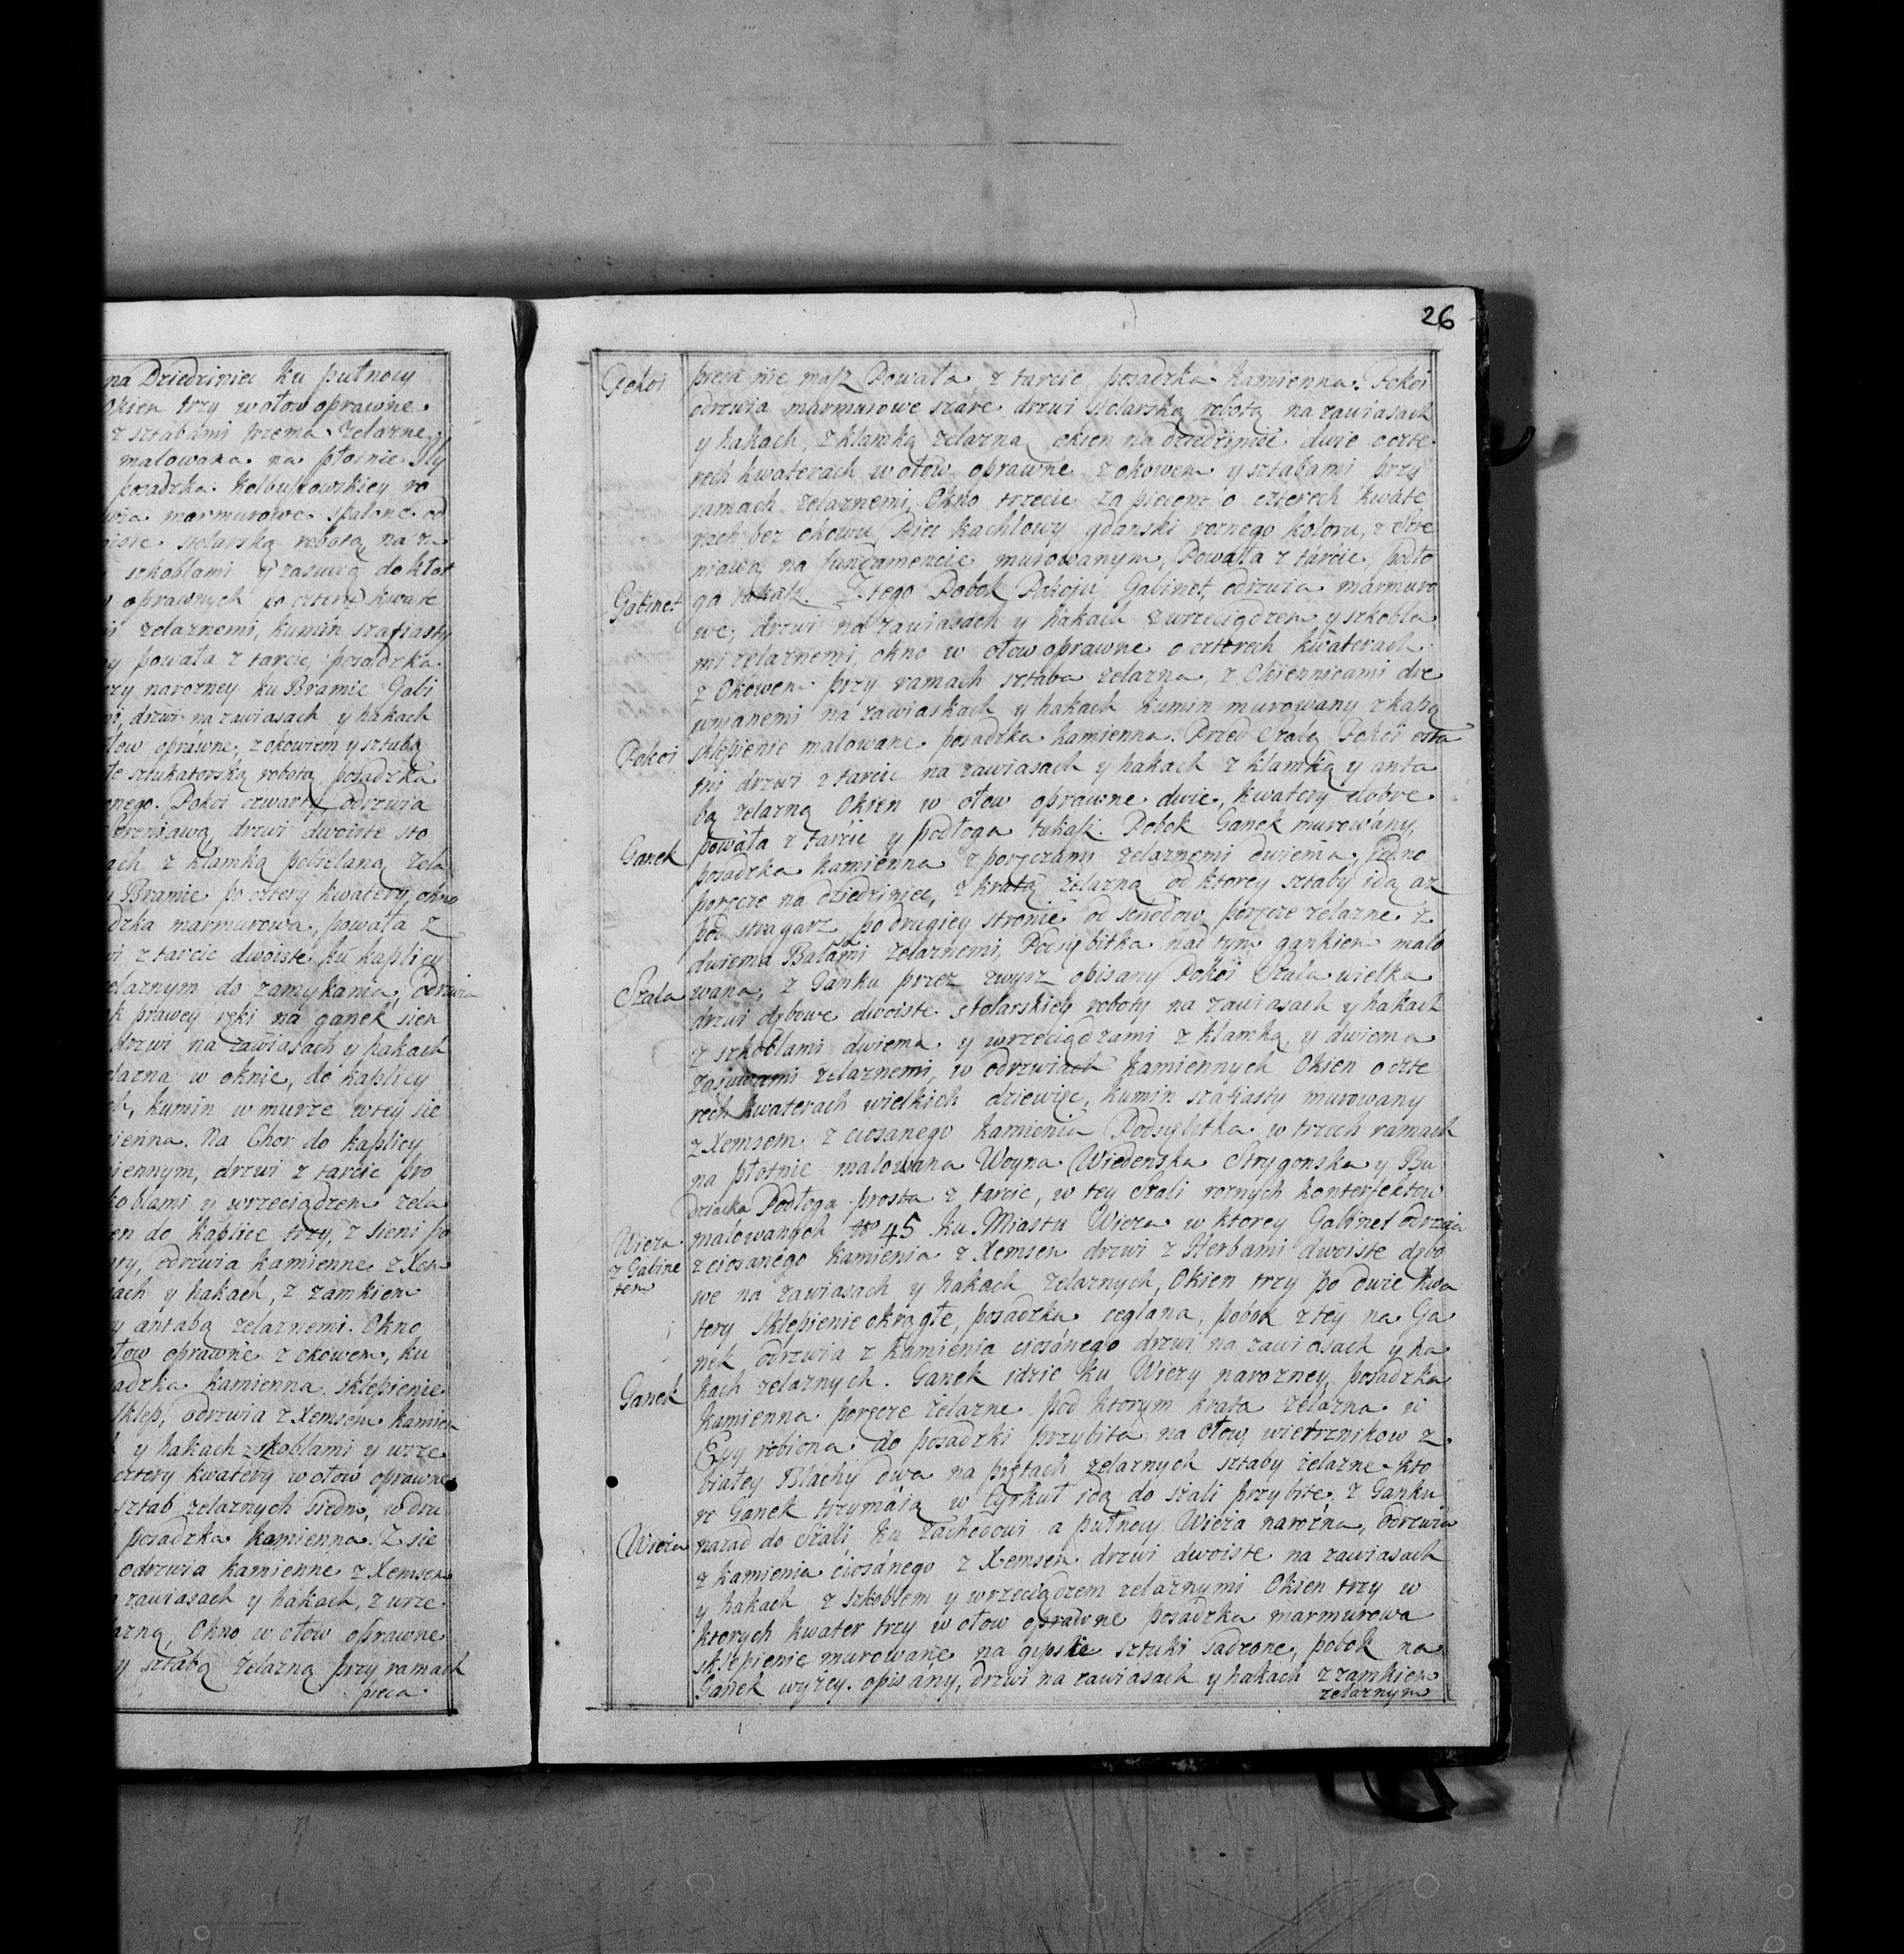 na Dziedziniec ku pułnocy
Okien trzy w ołow oprawne
z sztabami trzema żelazne
malowana na płotnie Sły
posadzka Kolbuszowskiey ro
marmurowe spalone od
stolarską robotą na za
szkoblami y zasuwą do kłot
oprawnych po cztery kwate
żelaznemi, kumin szafiasty
powała z tarcic, posadzka
narozney ku Bramie Gabi
drzwi na zawiasach y hakach
ołow oprawne, z okowem y sztabą
sztukatorską robotą posadzka
onego. Pokoi czwarty odrzwia
Szreniawą, drzwi dwoiste sto
ach z klamką pobielaną żela
Bramie po cztery kwatery, okno
dzka marmurowa, powała z
z tarcic dwoiste ku kaplicy
żelaznym do zamykania, Odrzwia
prawey ręki na ganek sien
drzwi na zawiasach y hakach
żelazna w oknie, do kaplicy
kumin w murze w tey sie
mienna. Na Chor do kaplicy
miennym, drzwi z tarcic pro
koblami y wrzeciądzem żela
en do kaplice trzy, z sieni po
ry, odrzwia kamienne z Xem
ach y hakach, z zamkiem
y antabą żelaznemi. Okno
ołow oprawne z okowem, ku
adzka kamienna sklepienie
Sklep, odrzwia z Xemsem kamien
y hakach z skoblami y wrze
cztery kwatery w ołow oprawne
sztab żelaznych siedm, w dru
posadzka kamienna. Z sie
odrzwia kamienne z Xemsem
zawiasach y hakach, z wrze
lazną, Okno w ołow oprawne
y sztabą żelazną przy ramach
pieca
26
Pokoi pieca nie masz Powała z tarcic posadzka kamienna. Pokoi
odrzwia marmurowe szare drzwi stolarską robotą na zawiasach
y hakach, z klamką żelazną okien na dziedziniec dwie o czte
rech kwaterach w ołow oprawne z okowem y sztabami przy
ramach żelaznemi, Okno trzecie za piecem o czterech kwate
rach bez okowu, Piec kachlowy gdanski roznego koloru, z Szre
niawą na fundamencie murowanym, Powała z tarcic, podło
Gabinet ga takaż. Z tego Pobok Pokoju Gabinet, odrzwia marmuro
we, drzwi na zawiasach y hakach z wrzeciądzem y szkobla
mi żelaznemi, okno w ołow oprawne o czterech kwaterach
z Okowem przy ramach sztaba żelazna, z Okiennicami dre
wnianemi na zawiaskach y hakach kumin murowany z kapą
Pokoi sklepienie malowane posadzka kamienna. Przed Szalą Pokoi osta
tni drzwi z tarcic na zawiasach y hakach z klamką y anta
bą żelazną Okien w ołow oprawne dwie, kwatery dobre
Ganek powała z tarcic y podłoga takaż. Pobok Ganek murowany,
posadzka kamienna z poręczami żelaznemi dwiema, jedno
poręcze na dziedziniec, z kratą żelazną od ktorey sztaby idą aż
pod stragarz po drugiey stronie od schodow poręcze żelazne z
dwiema Balami żelaznemi, Podsiębitka nad tym gankiem malo
Szala wana, z Ganku przez zwysz opisany Pokoi Szala wielka
drzwi dębowe dwoiste stolarskiey roboty na zawiasach y hakach
z szkoblami dwiema y wrzeciądzami z klamką, y dwiema
zasuwami żelaznemi, w odrzwiach kamiennych Okien o czte
rech kwaterach wielkich dziewięc, kumin szafiasty murowany
z Xemsem z ciosanego kamienia Podsiębitka w trzech ramach
na płotnie malowana Woyna Wiedenska Strygonska y Bu
dziacka Podłoga prosta z tarcic, w tey Szali roznych konterfektow
Wieża z Gabinetem malowanych No 45. ku Miastu Wieza w ktorey Gabinet odrzwia
z ciosanego kamienia z Xemsem drzwi z Herbami dwoiste dębo
we na zawiasach y hakach żelaznych, Okien trzy po dwie kwa
tery Sklepienie okrągłe, posadzka ceglana, pobok z tey na Ga
nek odrzwia z kamienia ciosanego drzwi na zawiasach y ha
Ganek kach żelaznych. Ganek idzie ku Wiezy narozney, posadzka
kamienna poręcze żelazne pod ktorym krata żelazna w
Esy robiona do posadzki przybita na ołow, wietrznikow z
białey Blachy dwa na prętach żelaznych sztaby żelazne kto
re Ganek trzymaią w Cyrkuł idą do szali przybite, z Ganku
Wieza nazad do Szali ku zachodowi a pułnocy Wieza narożna, Odrzwia
z kamienia ciosanego z Xemsem drzwi dwoiste na zawiasach
y hakach z szkoblem y wrzeciądzem żelaznymi Okien trzy w
ktorych kwater trzy w ołow oprawne posadzka marmurowa
sklepienie murowane na gipskie sztuki sadzone, pobok na
Ganek wyżey opisany, drzwi na zawiasach y hakach z zamkiem
żelaznym